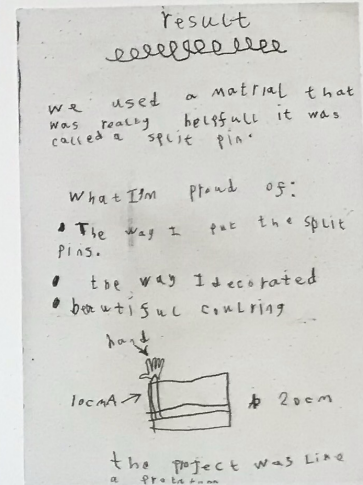 result
we used a matrial that
was really helpfull it was
called a split pin.
What I'm proud of:
• The way I put the split
pins.
• the way I decorated
• beautiful coulring
hand
10cm
20cm
the project was like
a